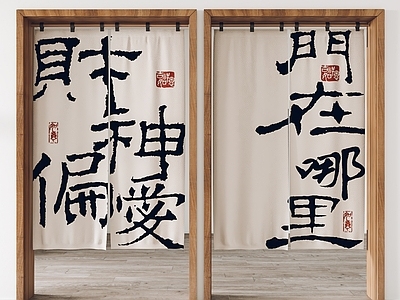 財神
偏愛
門在哪里